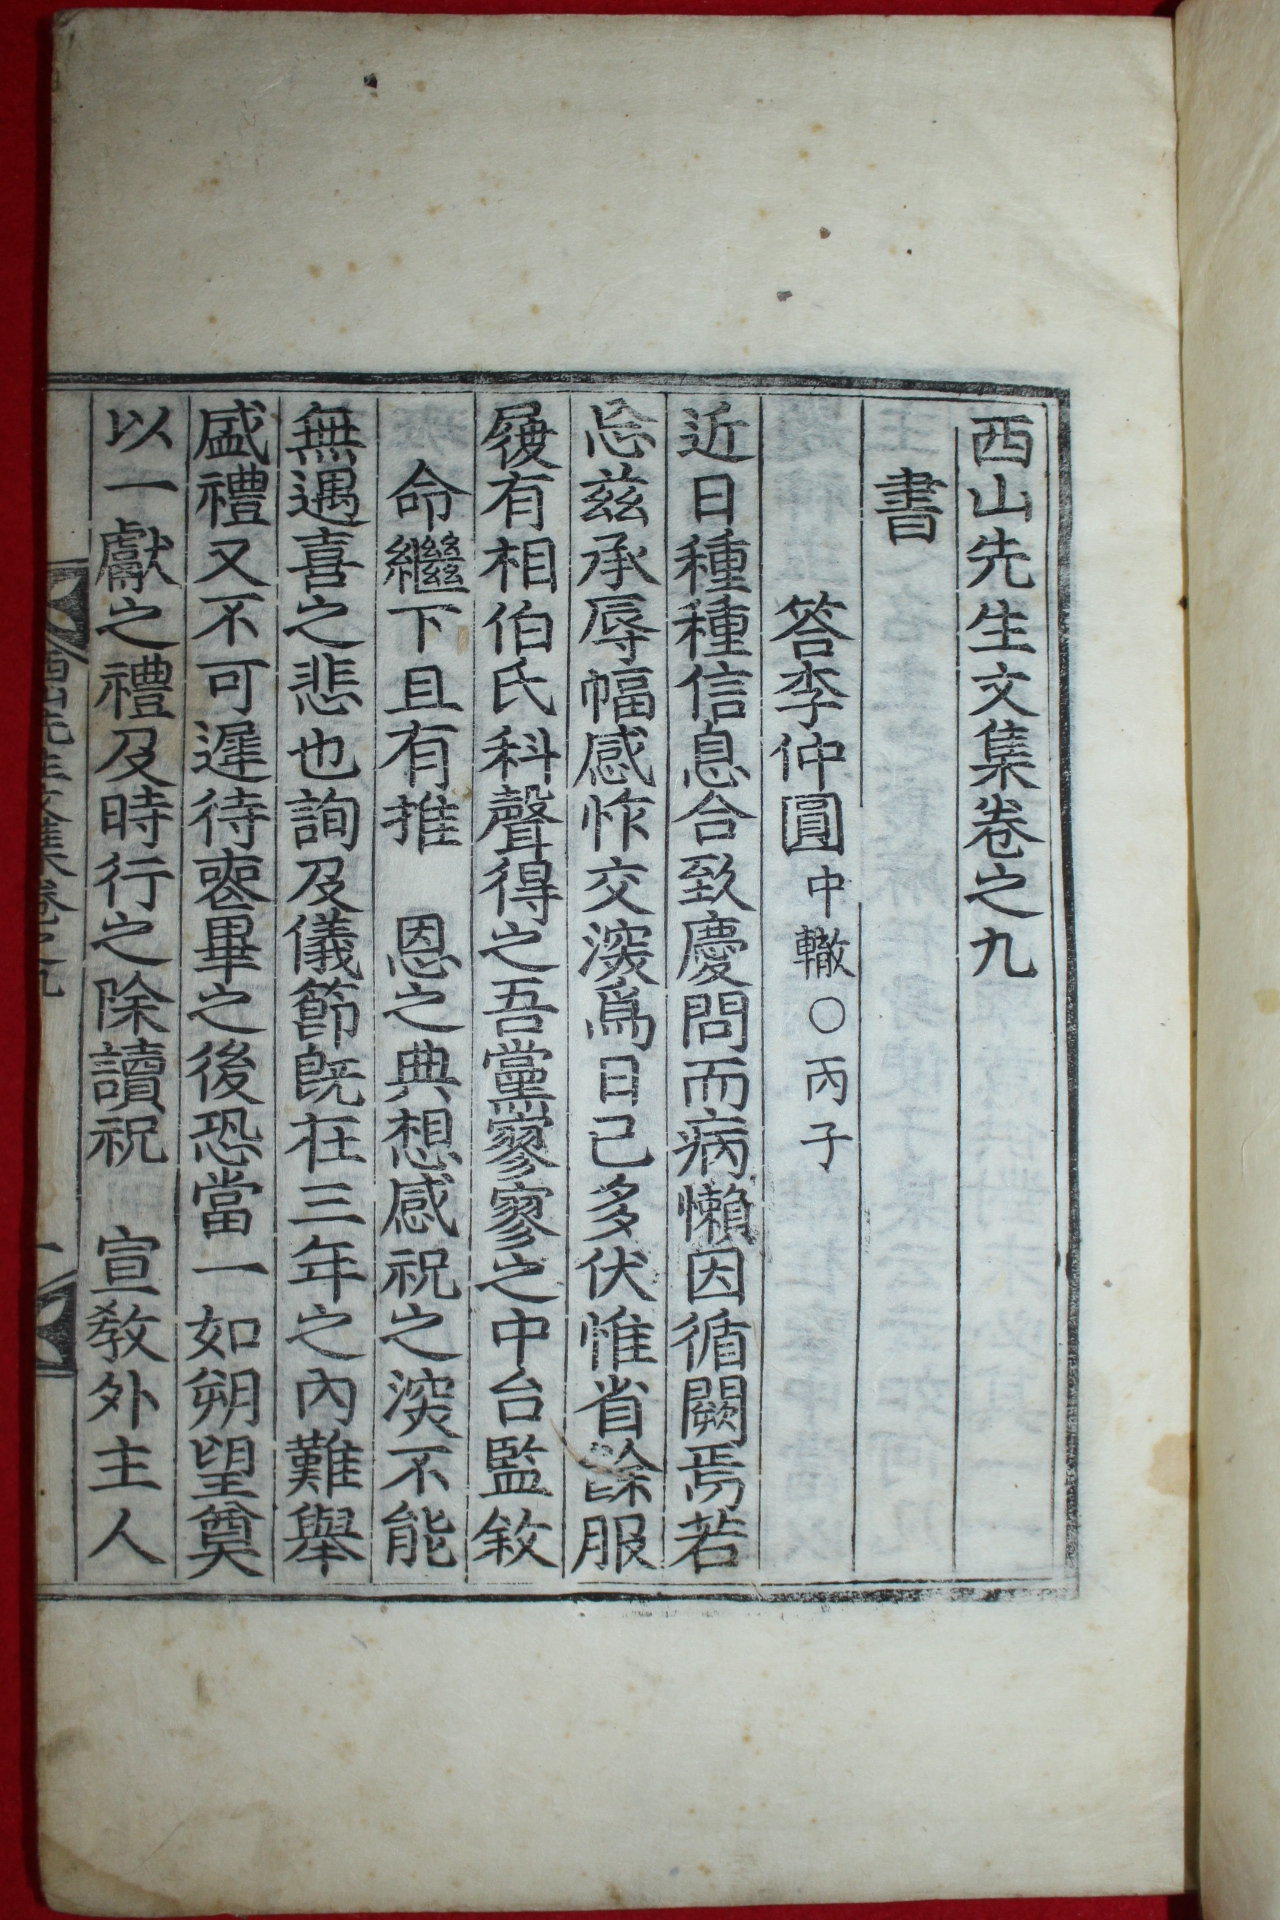 西山先生文集卷之九
書
答李仲圓中轍○丙子
近日種種信息合致慶問而病懶因循闕焉若
忘茲承辱幅感怍交深爲日已多伏惟省餘服
履有相伯氏科聲得之吾黨寥寥之中台監敘
命繼下且有推 恩之典想感祝之深不能
無遇喜之悲也詢及儀節旣在三年之內難舉
盛禮又不可遲待喪畢之後恐當一如朔望奠
以一獻之禮及時行之除讀祝 宣敎外主人
西山先生文集卷之九 一